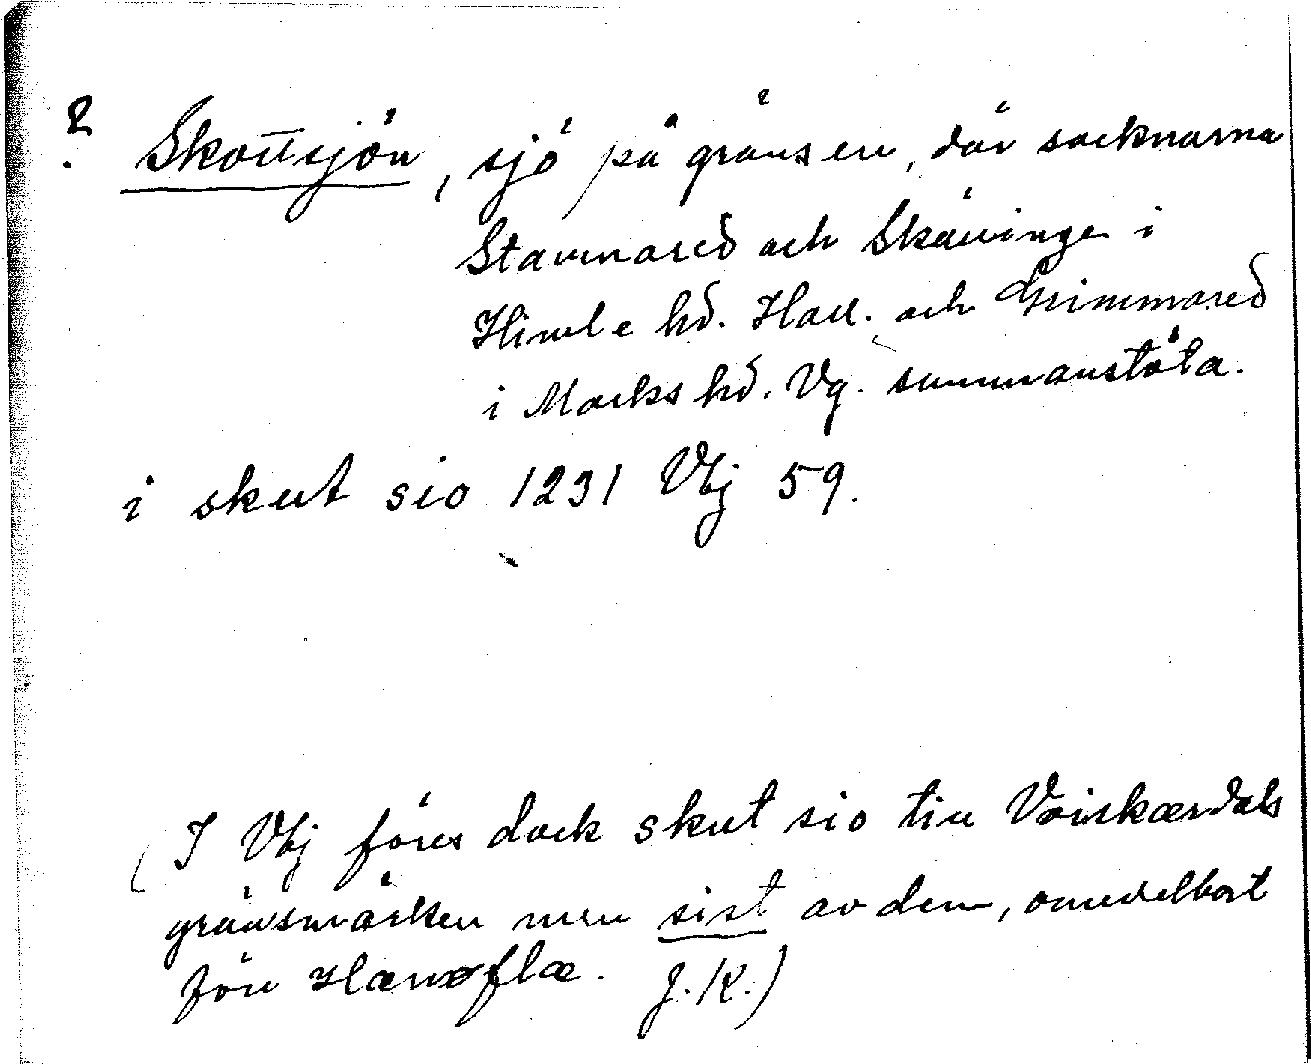 ? Skottsjön, sjö på gränsen, där socknarna
Stamnared och Skällinge i
Himle hd. Hall. och Grimmared
i Marks hd. Vg. sammanstöta.
i skut sio 1231 Vbj 59.
(I Vbj föres dock skut sio till Voiskærdals
gränsmärken men sist av dem, omedelbart
före Hænøflæ. J.K.)